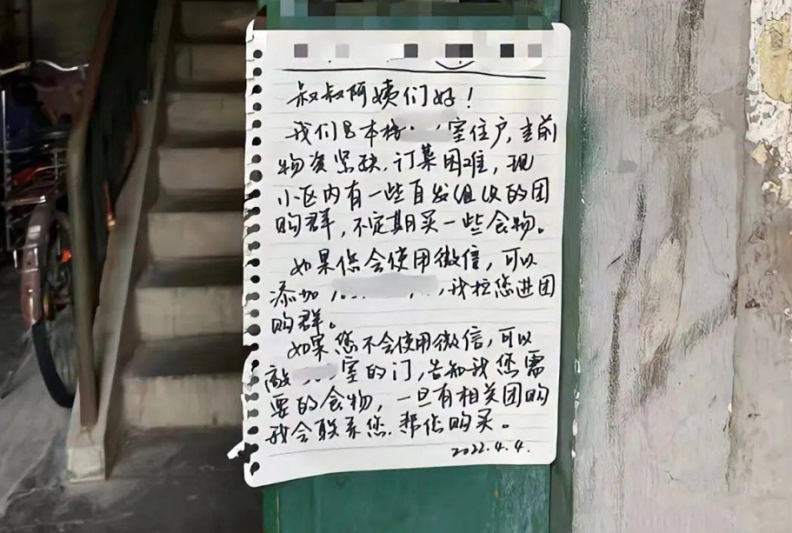 叔叔阿姨们好！
我们是本楼室住户，当前
物资紧缺，订菜困难，现
小区内有一些自发组织的团
购群，不定期买一些食物。
如果您会使用微信，可以
添加，我拉您进团
购群。
如果您不会使用微信，可以
敲室的门，告知我您需
要的食物，一旦有相关团购
我会联系您，帮您购买。
2022.4.4